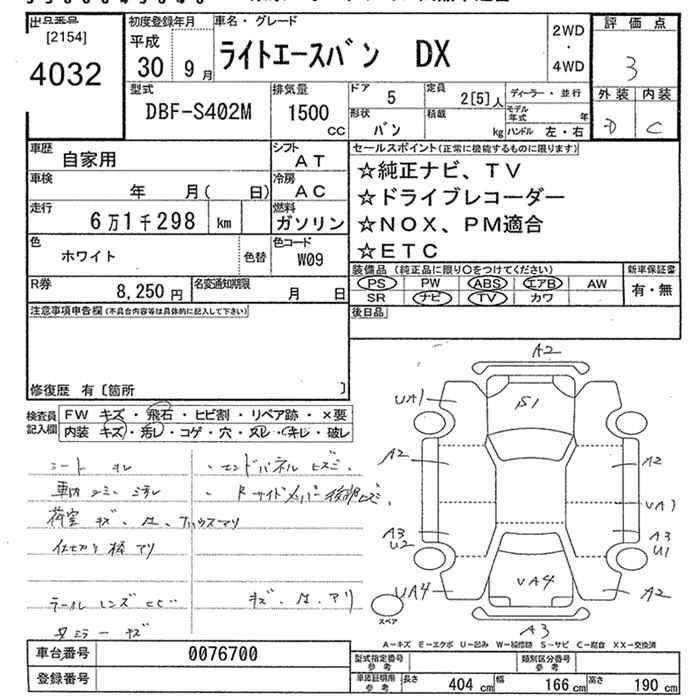 出品番号
[2154]
4032
初度登録年月
平成
30 9月
車名・グレード
ライトエースバン DX
2WD
・
4WD
評価点
3
外装 内装
D C
型式
DBF-S402M
排気量
1500
CC
ドア 5
定員 2[5]人
ディーラー・並行
形状 バン
積載 kg
モデル年式 年
ハンドル 左・右
車歴 自家用
シフト AT
車検 年 月( 日)
冷房 AC
走行 6万1千298 km
燃料 ガソリン
色 ホワイト 色替
色コード W09
R券 8,250円
名変通知期限 月 日
セールスポイント(正常に機能するものに限ります)
☆純正ナビ、TV
☆ドライブレコーダー
☆NOX、PM適合
☆ETC
装備品 (純正品に限り○をつけてください)
新車保証書
PS PW ABS エアB AW
有・無
SR ナビ TV カワ
後日品
注意事項申告欄(不具合内容等は具体的に記入して下さい)
修復歴 有〔箇所 〕
検査員記入欄
FW キズ・飛石・ヒビ割・リペア跡・×要
内装 キズ・汚レ・コゲ・穴・スレ・キレ・破レ
シート
・エンドパネル ヒズミ、
車内
・Rサイドメンバー後部ヒズミ
荷室 キズ、
仕切り板 アリ
テールレンズ ヒビ
アリ
ミラー キズ
A2
UA1
S1
A2
A2
UA1
A3
U2
A3
U1
UA4
UA4
A2
A3
スペア
A-キズ E-エクボ U-凹み W-補修跡 S-サビ C-腐食 XX-交換済
車台番号 0076700
登録番号
型式指定番号参考
類別区分番号参考
車庫証明用参考
長さ 404 cm 幅 166 cm 高さ 190 cm